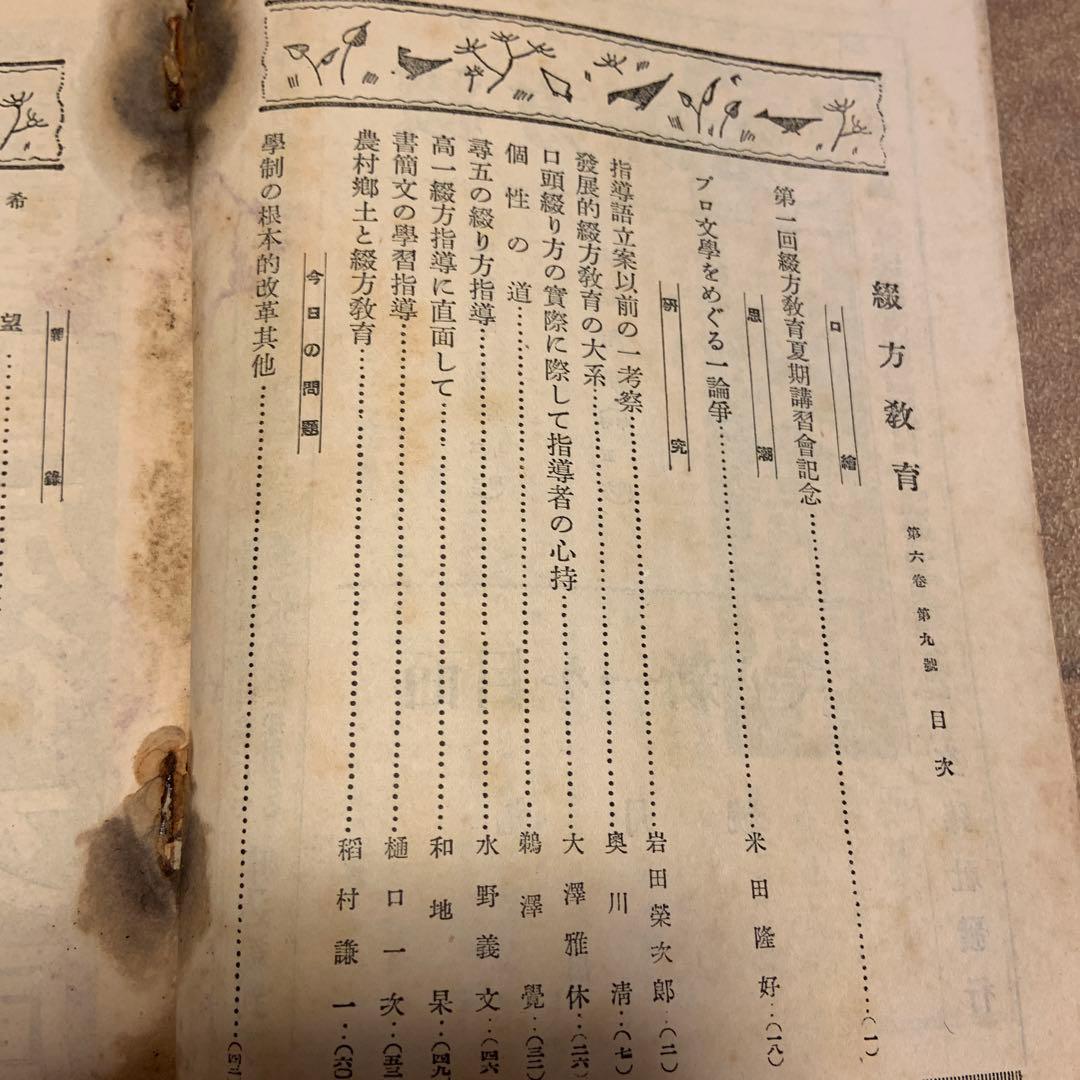 綴方教育 第六卷 第九號 目次
口繪
第一回綴方教育夏期講習會記念……(一)
思潮
プロ文學をめぐる一論爭……米田隆好…(一八)
研究
指導語立案以前の一考察……岩田榮次郎…(二)
發展的綴方教育の大系……奥川清…(七)
口頭綴り方の實際に際して指導者の心持……大澤雅休…(二六)
個性の道……鵜澤覺…(三二)
尋五の綴り方指導……水野義文…(四六
高一綴方指導に直面して……和地杲…(四九
書簡文の學習指導……樋口一次…(五三
農村鄕土と綴方教育……稻村謙一…(六〇
今日の問題
學制の根本的改革其他……(四二
雜錄
希
望……